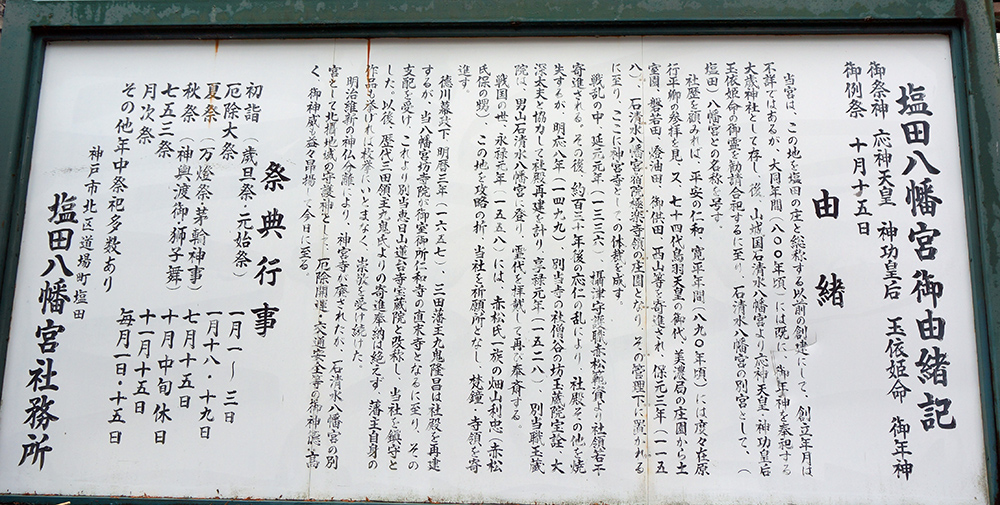 塩田八幡宮御由緒記
御祭神 応神天皇 神功皇后 玉依姫命 御年神
御例祭 十月十五日
由緒
当宮は、この地を塩田の庄と総称する以前の創建にして、創立年月は
不詳ではあるが、大同年間(八〇〇年頃)には既に、御年神を奉祀する
大歳神社として存し、後、山城国石清水八幡宮より応神天皇・神功皇后
玉依姫命の御霊を勧請合祀するに至り、石清水八幡宮の別宮として、(
塩田)八幡宮との名称を号す。
社歴を顧みれば、平安の仁和・寛平年間(八九〇年頃)には度々在原
行平卿の参拝を見、又、七十四代鳥羽天皇の御代、美濃局の庄園から土
室園、磐若田、燈油田、御供田、西山峯等の寄進され、保元三年(一一五
八)、石清水八幡宮宿院極楽寺領の庄園となり、その管理下に置かれる
に至り、ここに神宮寺としての体裁を成す。
戦乱の中、延元元年(一三三六)、摂津守護職赤松範資より社領若干
寄進される。その後、約百三十年後の応仁の乱により、社殿その他を焼
失するが、明応八年(一四九九)、別当寺の社僧谷の坊玉蔵院宗詮、大
深大夫と協力して社殿再建を計り、享禄元年(一五二八)、別当職玉蔵
院は、男山石清水八幡宮に登り、霊代を拝載して再び奉斎する。
戦国の世、永禄元年(一五五八)には、赤松氏一族の畑山利忠(赤松
氏保の甥)、この地を攻略の折、当社を祈願所となし、梵鐘、寺領を寄
進す。
徳川幕政下、明暦三年(一六五七)、三田藩主九鬼隆昌は社殿を再建
するが、当八幡宮坊寺院が御室御所仁和寺の直末寺となるに至り、その
支配を受け、これより別当恵日山蓮台寺宝蔵院と改称し、当社を鎮守と
した。以後、歴代三田領主九鬼氏よりの寄進奉納は絶えず、藩主自身の
作品も挙げれば枚挙にいとまなく、崇敬を受け続けた。
明治維新の神仏分離により、神宮寺が廃されたが、石清水八幡宮の別
宮として北摂地域の守護神とした、厄除開運・交通安全等の御神徳も高
く、御神威も益々昂揚して今日に至る。
祭典行事
初詣(歳旦祭・元始祭) 一月一〜三日
厄除大祭 一月十八・十九日
夏祭(万燈祭茅輪神事) 七月十五日
秋祭(神輿渡御・獅子舞) 十月中旬休日
七五三祭 十一月十五日
月次祭 毎月一日・十五日
その他年中祭祀多数あり
神戸市北区道場町塩田
塩田八幡宮社務所